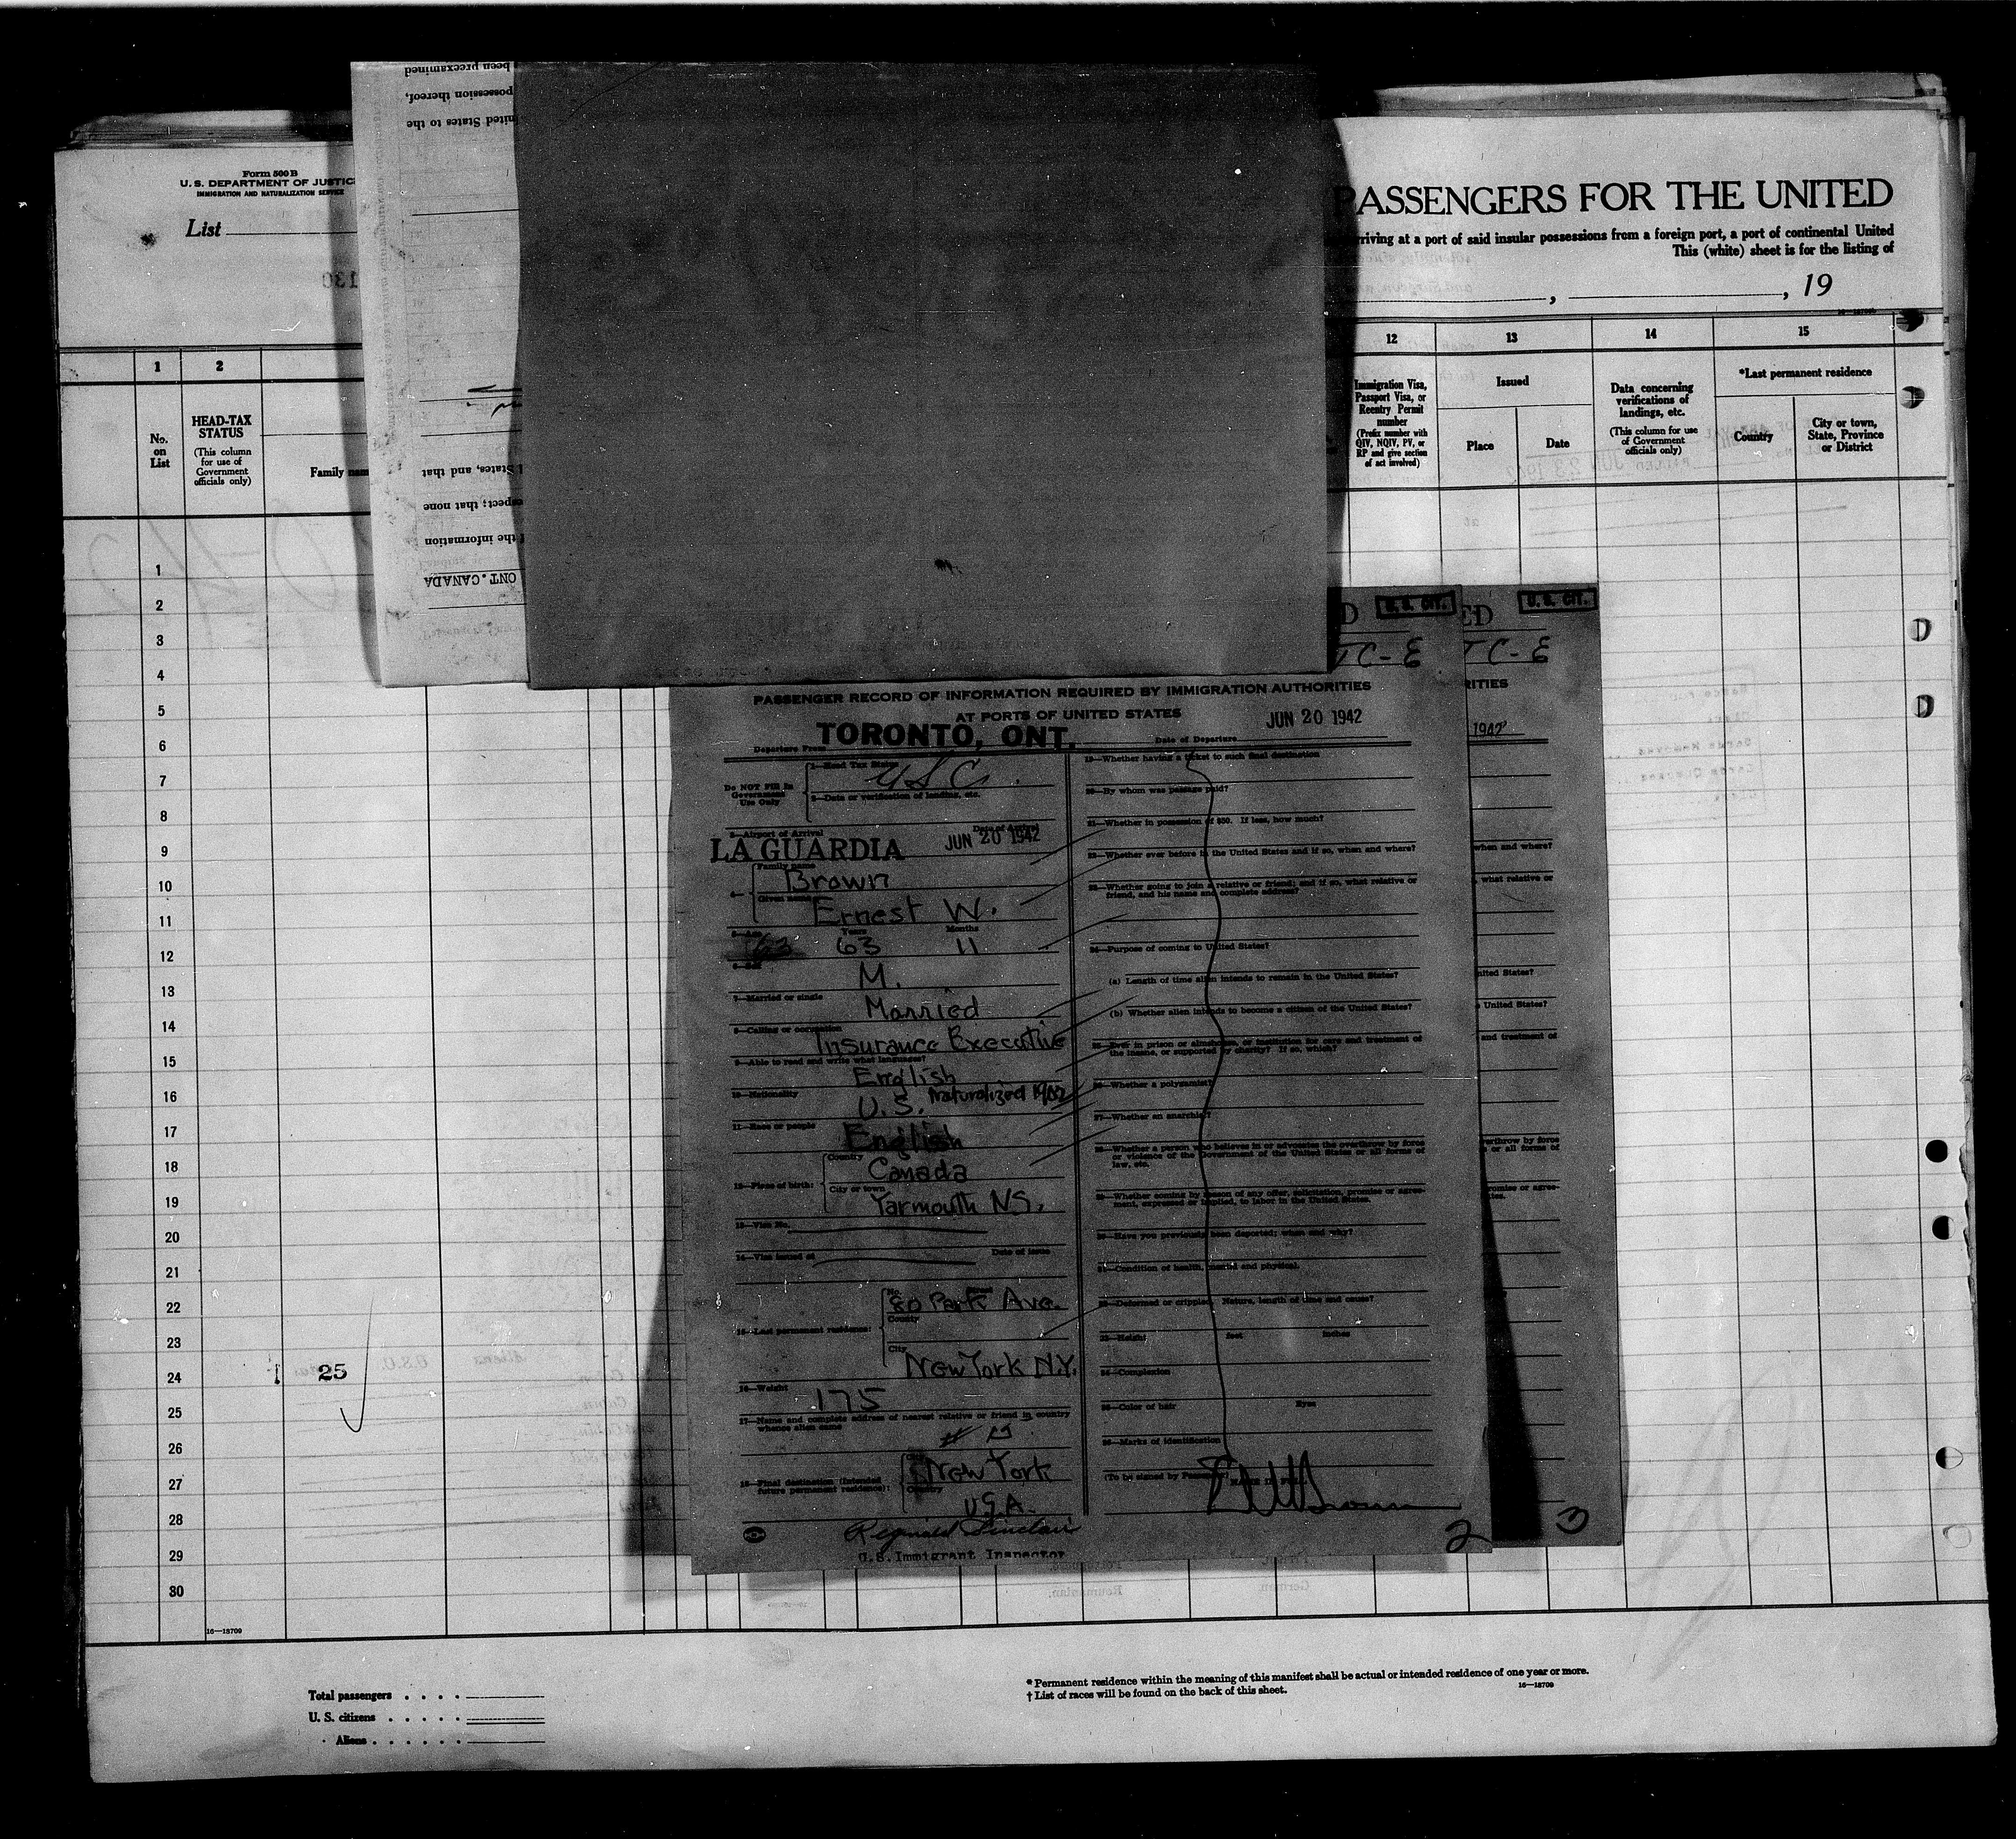 been preexamined
possession thereof,
United States to the
States, and that
spect; that none
the information
ONT. CANADA
Form 500 B
U. S. DEPARTMENT OF JUSTIC
IMMIGRATION AND NATURALIZATION SERVICE
List
130
PASSENGERS FOR THE UNITED
rriving at a port of said insular possessions from a foreign port, a port of continental United
This (white) sheet is for the listing of
, , 19
1 2 12 13 14 15
No. on List
HEAD-TAX STATUS
(This column for use of Government officials only)
Family nam
Immigration Visa, Passport Visa, or Reentry Permit number
(Prefix number with QIV, NQIV, PV, or RP and give section of act involved)
Issued
Place
Date
Data concerning verifications of landings, etc.
(This column for use of Government officials only)
*Last permanent residence
Country
City or town, State, Province or District
1
2
3
4
5
6
7
8
9
10
11
12
13
14
15
16
17
18
19
20
21
22
23
24
25
26
27
28
29
30
25
D U. S. CIT.
ED U. S. CIT.
TC-E
TC-E
PASSENGER RECORD OF INFORMATION REQUIRED BY IMMIGRATION AUTHORITIES
AT PORTS OF UNITED STATES
Departure From TORONTO, ONT. Date of Departure JUN 20 1942
Do NOT Fill In Government Use Only
1—Head Tax Status U S C.
2—Data or verification of landing, etc.
3—Airport of Arrival Date of Arrival
LA GUARDIA JUN 20 1942
4— Family name Brown
Given name Ernest W.
5—Age 63 Years 63 Months 11
6—Sex M.
7—Married or single Married
8—Calling or occupation Insurance Executive
9—Able to read and write what languages? English
10—Nationality U.S. Naturalized 1902
11—Race or people English
12—Place of birth: Country Canada
City or town Yarmouth N.S.
13—Visa No.
14—Visa issued at Date of issue
15—Last permanent residence: No. 80 Park Ave.
County
City New York N.Y.
16—Weight 175
17—Name and complete address of nearest relative or friend in country
whence alien came
# 15
18—Final destination (Intended future permanent residence): New York
Country U.S.A.
Reginald Sinclair
U.S. Immigrant Inspector
19—Whether having a ticket to such final destination
20—By whom was passage paid?
21—Whether in possession of $50. If less, how much?
22—Whether ever before in the United States and if so, when and where?
23—Whether going to join a relative or friend; and if so, what relative or
friend, and his name and complete address?
24—Purpose of coming to United States?
(a) Length of time alien intends to remain in the United States?
(b) Whether alien intends to become a citizen of the United States?
25—Ever in prison or almshouse, or institution for care and treatment of
the insane, or supported by charity? If so, which?
26—Whether a polygamist?
27—Whether an anarchist?
28—Whether a person who believes in or advocates the overthrow by force
or violence of the Government of the United States or all forms of
law, etc.
29—Whether coming by reason of any offer, solicitation, promise or agree-
ment, expressed or implied, to labor in the United States.
30—Have you previously been deported; when and why?
31—Condition of health, mental and physical.
32—Deformed or crippled. Nature, length of time and cause?
33—Height feet inches
34—Complexion
35—Color of hair Eyes
36—Marks of identification
(To be signed by Passenger)
2
RITIES
1942
when and where?
what relative or
nited States?
United States?
and treatment of
verthrow by force
or all forms of
romise or agree-
tes.
3
16—18709
Total passengers . . . .
U. S. citizens . . . . .
Aliens . . . . . .
* Permanent residence within the meaning of this manifest shall be actual or intended residence of one year or more.
† List of races will be found on the back of this sheet.
16—18709